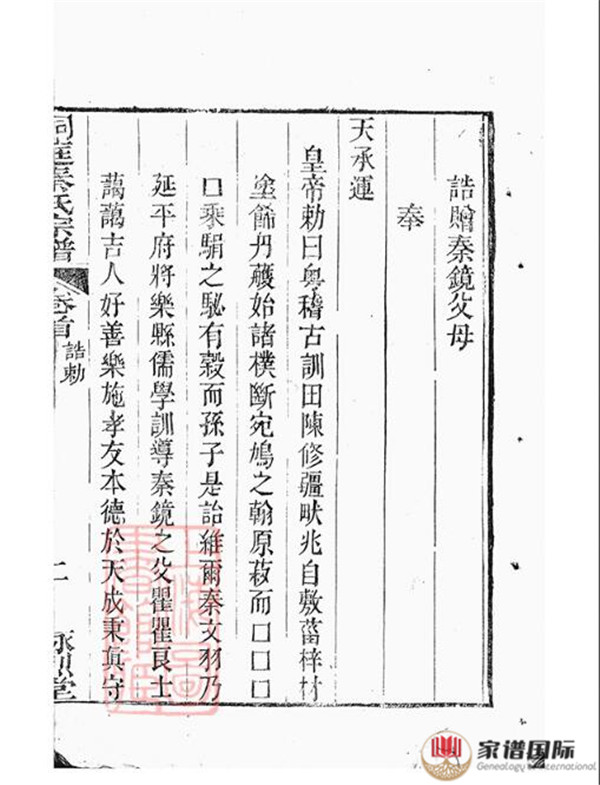 誥贈秦鏡父母
奉
天承運
皇帝勅曰粵稽古訓田陳修疆畎兆自敷菑梓材
塗餙丹雘始諸樸斲宛鳩之翰原菽而口口口
口乘騆之駜有穀而孫子是詒維爾秦文羽乃
延平府將樂縣儒學訓導秦鏡之父瞿瞿良士
藹藹吉人好善樂施孝友本德於天成秉眞守
洞庭秦氏宗譜
卷首
誥勅
二
詠烈堂
家谱国际
Genealogy of International